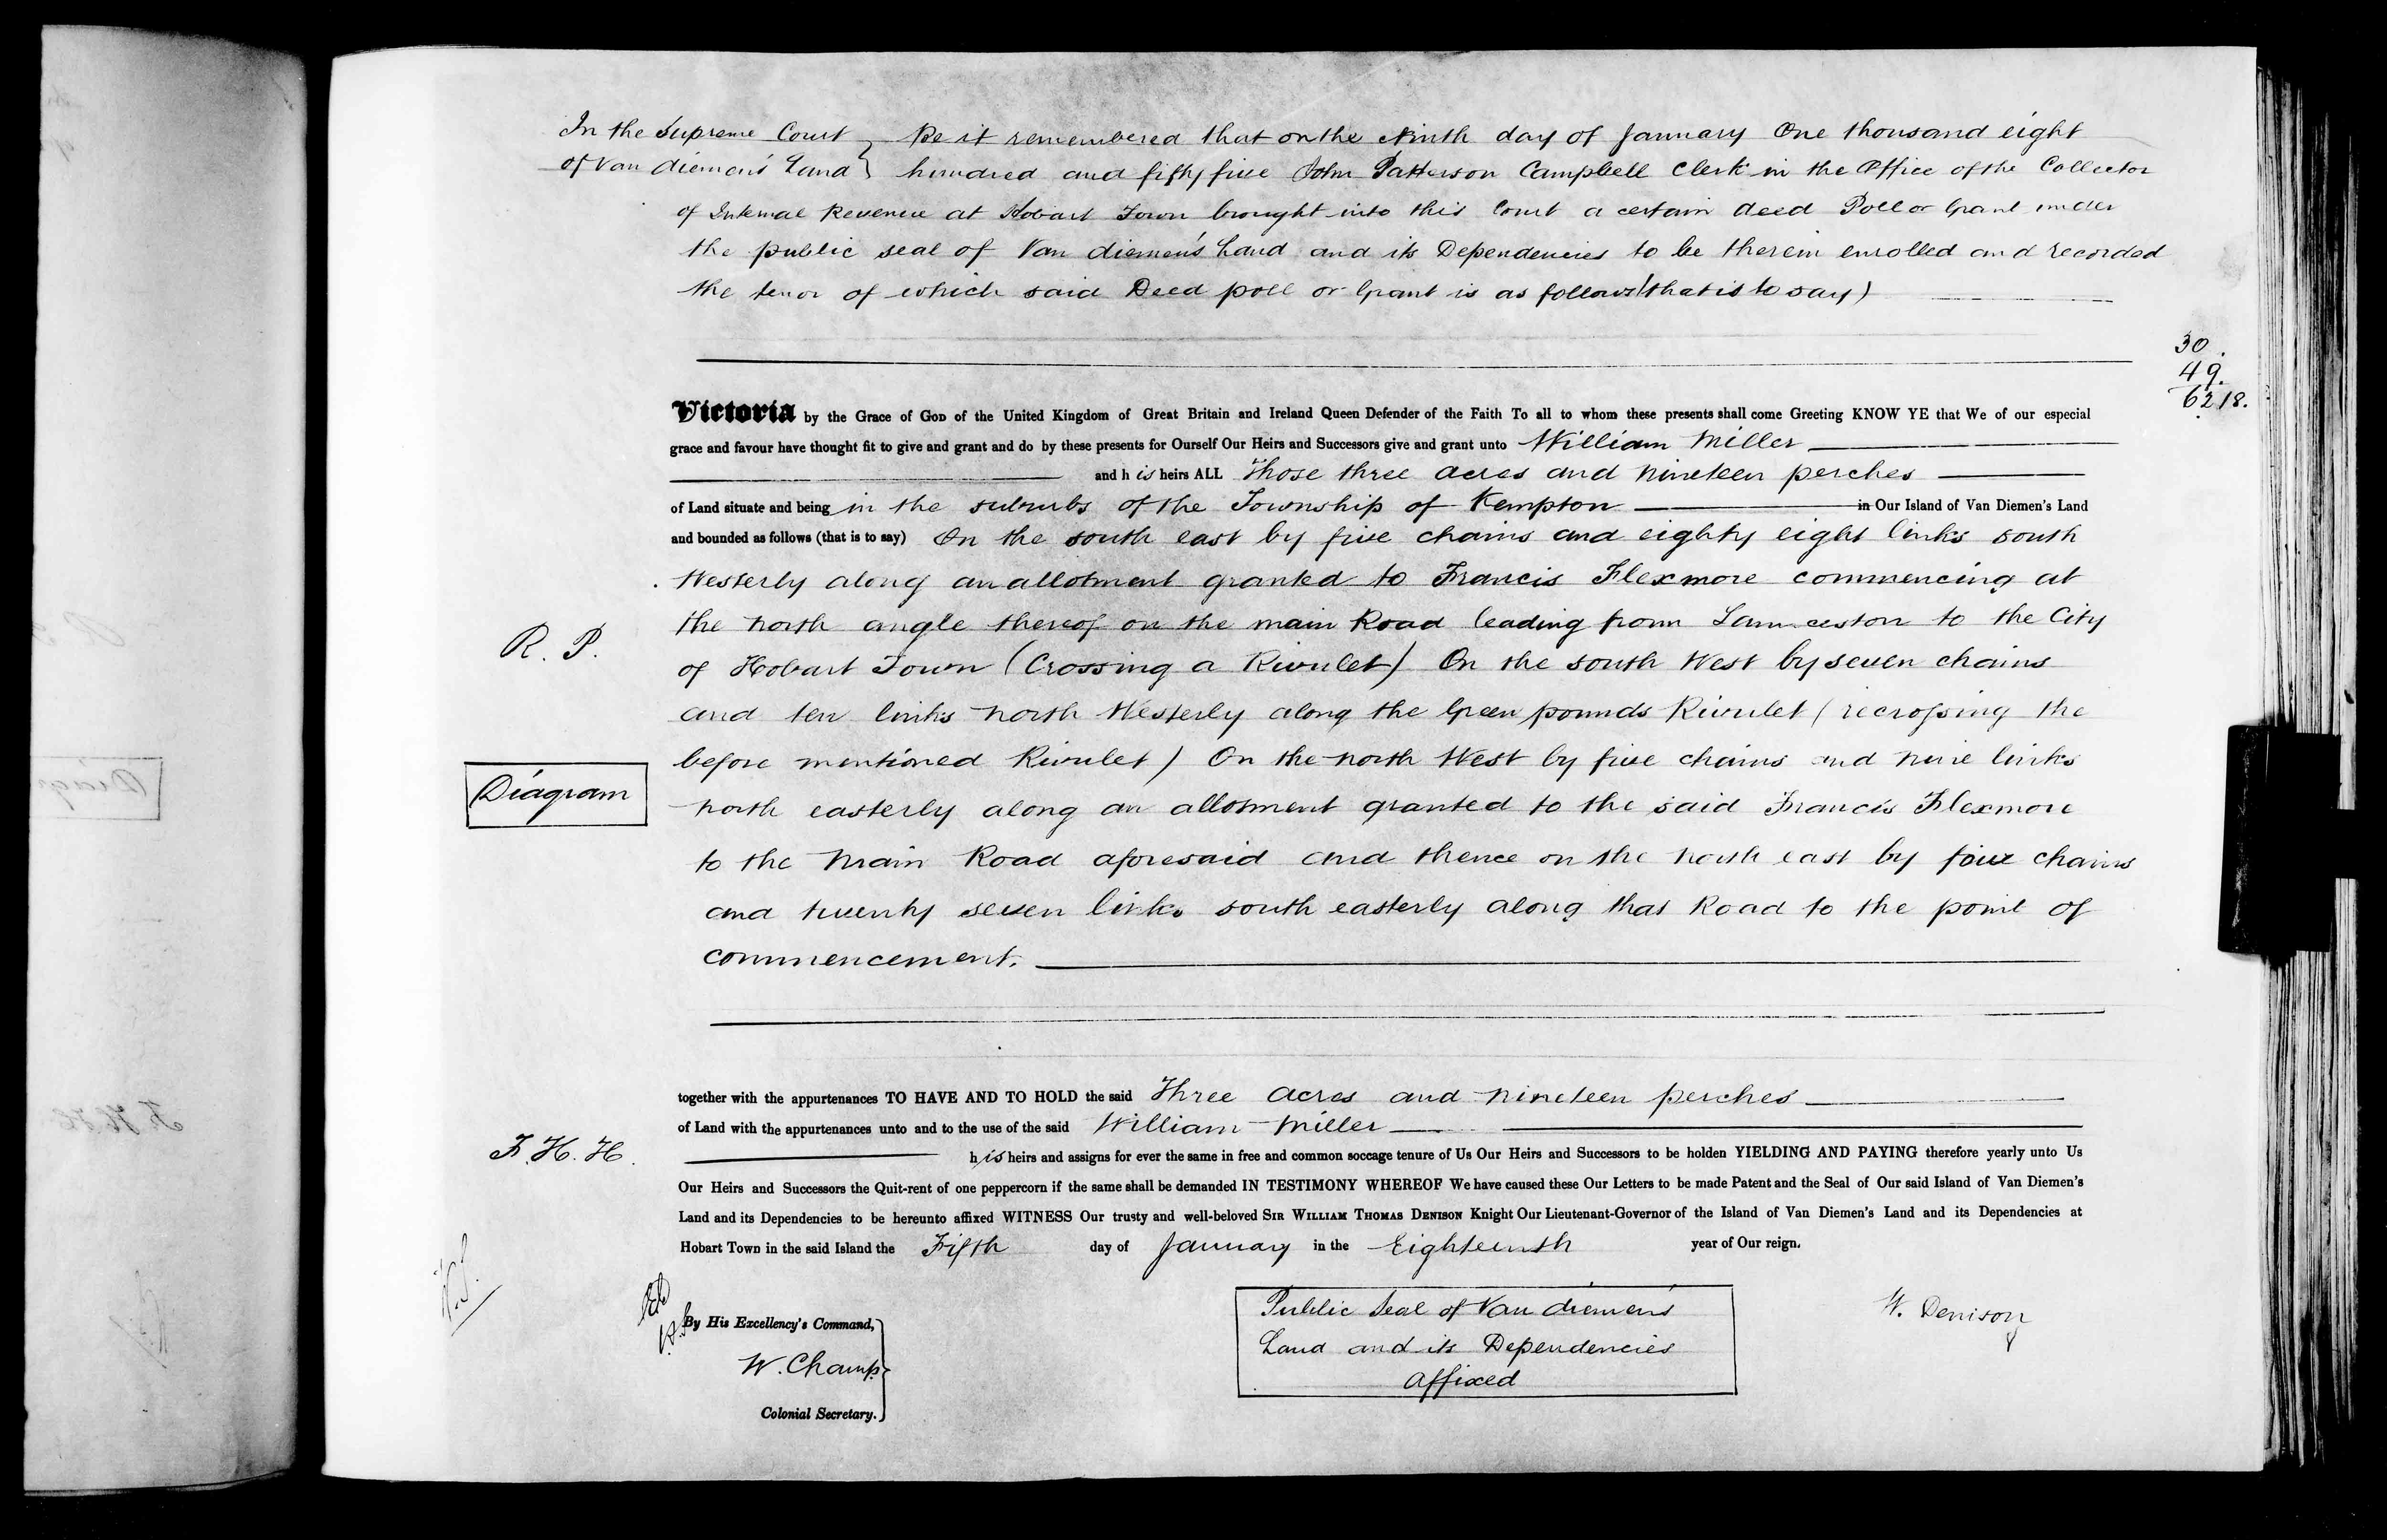 In the Supreme Court } Be it remembered that on the Ninth day of January One thousand eight
of Van diemen's Land } hundred and fifty five John Patterson Campbell Clerk in the Office of the Collector
of Internal Revenue at Hobart Town brought into this Court a certain deed Poll or Grant under
the public seal of Van diemen's Land and its Dependencies to be therein enrolled and recorded
the tenor of which said Deed poll or Grant is as follows (that is to say)
30.
49.
6218.
Victoria by the Grace of GOD of the United Kingdom of Great Britain and Ireland Queen Defender of the Faith To all to whom these presents shall come Greeting KNOW YE that We of our especial
grace and favour have thought fit to give and grant and do by these presents for Ourself Our Heirs and Successors give and grant unto William Miller
and his heirs ALL Those three acres and nineteen perches
of Land situate and being in the suburbs of the Township of Kempton in Our Island of Van Diemen's Land
and bounded as follows (that is to say) On the south east by five chains and eighty eight links south
Westerly along an allotment granted to Francis Flexmore commencing at
the north angle thereof on the main Road leading from Launceston to the City
R. P.
of Hobart Town (Crossing a Rivulet) On the south West by seven chains
and ten links north Westerly along the Green pounds Rivulet (recrossing the
before mentioned Rivulet) On the north West by five chains and nine links
Diagram
north easterly along an allotment granted to the said Francis Flexmore
to the Main Road aforesaid and thence on the north east by four chains
and twenty seven links south easterly along that Road to the point of
commencement.
together with the appurtenances TO HAVE AND TO HOLD the said Three acres and nineteen perches
of Land with the appurtenances unto and to the use of the said William Miller
F. H. H.
his heirs and assigns for ever the same in free and common soccage tenure of Us Our Heirs and Successors to be holden YIELDING AND PAYING therefore yearly unto Us
Our Heirs and Successors the Quit-rent of one peppercorn if the same shall be demanded IN TESTIMONY WHEREOF We have caused these Our Letters to be made Patent and the Seal of Our said Island of Van Diemen's
Land and its Dependencies to be hereunto affixed WITNESS Our trusty and well-beloved SIR WILLIAM THOMAS DENISON Knight Our Lieutenant-Governor of the Island of Van Diemen's Land and its Dependencies at
Hobart Town in the said Island the Fifth day of January in the Eighteenth year of Our reign.
By His Excellency's Command,
W. Champ
Colonial Secretary.
Public Seal of Van diemen's
Land and its Dependencies
affixed
W. Denison